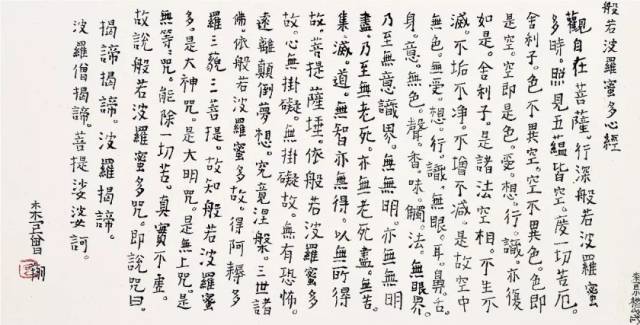 般若波羅蜜多心經
觀自在菩薩。行深般若波羅蜜
多時。照見五蘊皆空。度一切苦厄。
舍利子。色不異空。空不異色。色即
是空。空即是色。受。想。行。識。亦復
如是。舍利子。是諸法空相。不生不
滅。不垢不淨。不增不減。是故空中
無色。無受。想。行。識。無眼。耳。鼻。舌。
身。意。無色。聲。香。味。觸。法。無眼界。
乃至無意識界。無無明。亦無無明
盡。乃至無老死。亦無老死盡。無苦。
集。滅。道。無智亦無得。以無所得
故。菩提薩埵。依般若波羅蜜多
故。心無掛礙。無掛礙故。無有恐怖。
遠離顛倒夢想。究竟涅槃。三世諸
佛。依般若波羅蜜多故。得阿耨多
羅三藐三菩提。故知般若波羅蜜
多。是大神咒。是大明咒。是無上咒。是
無等咒。能除一切苦。真實不虛。
故說般若波羅蜜多咒。即說咒曰。
揭諦揭諦。波羅揭諦。
波羅僧揭諦。菩提娑婆訶。